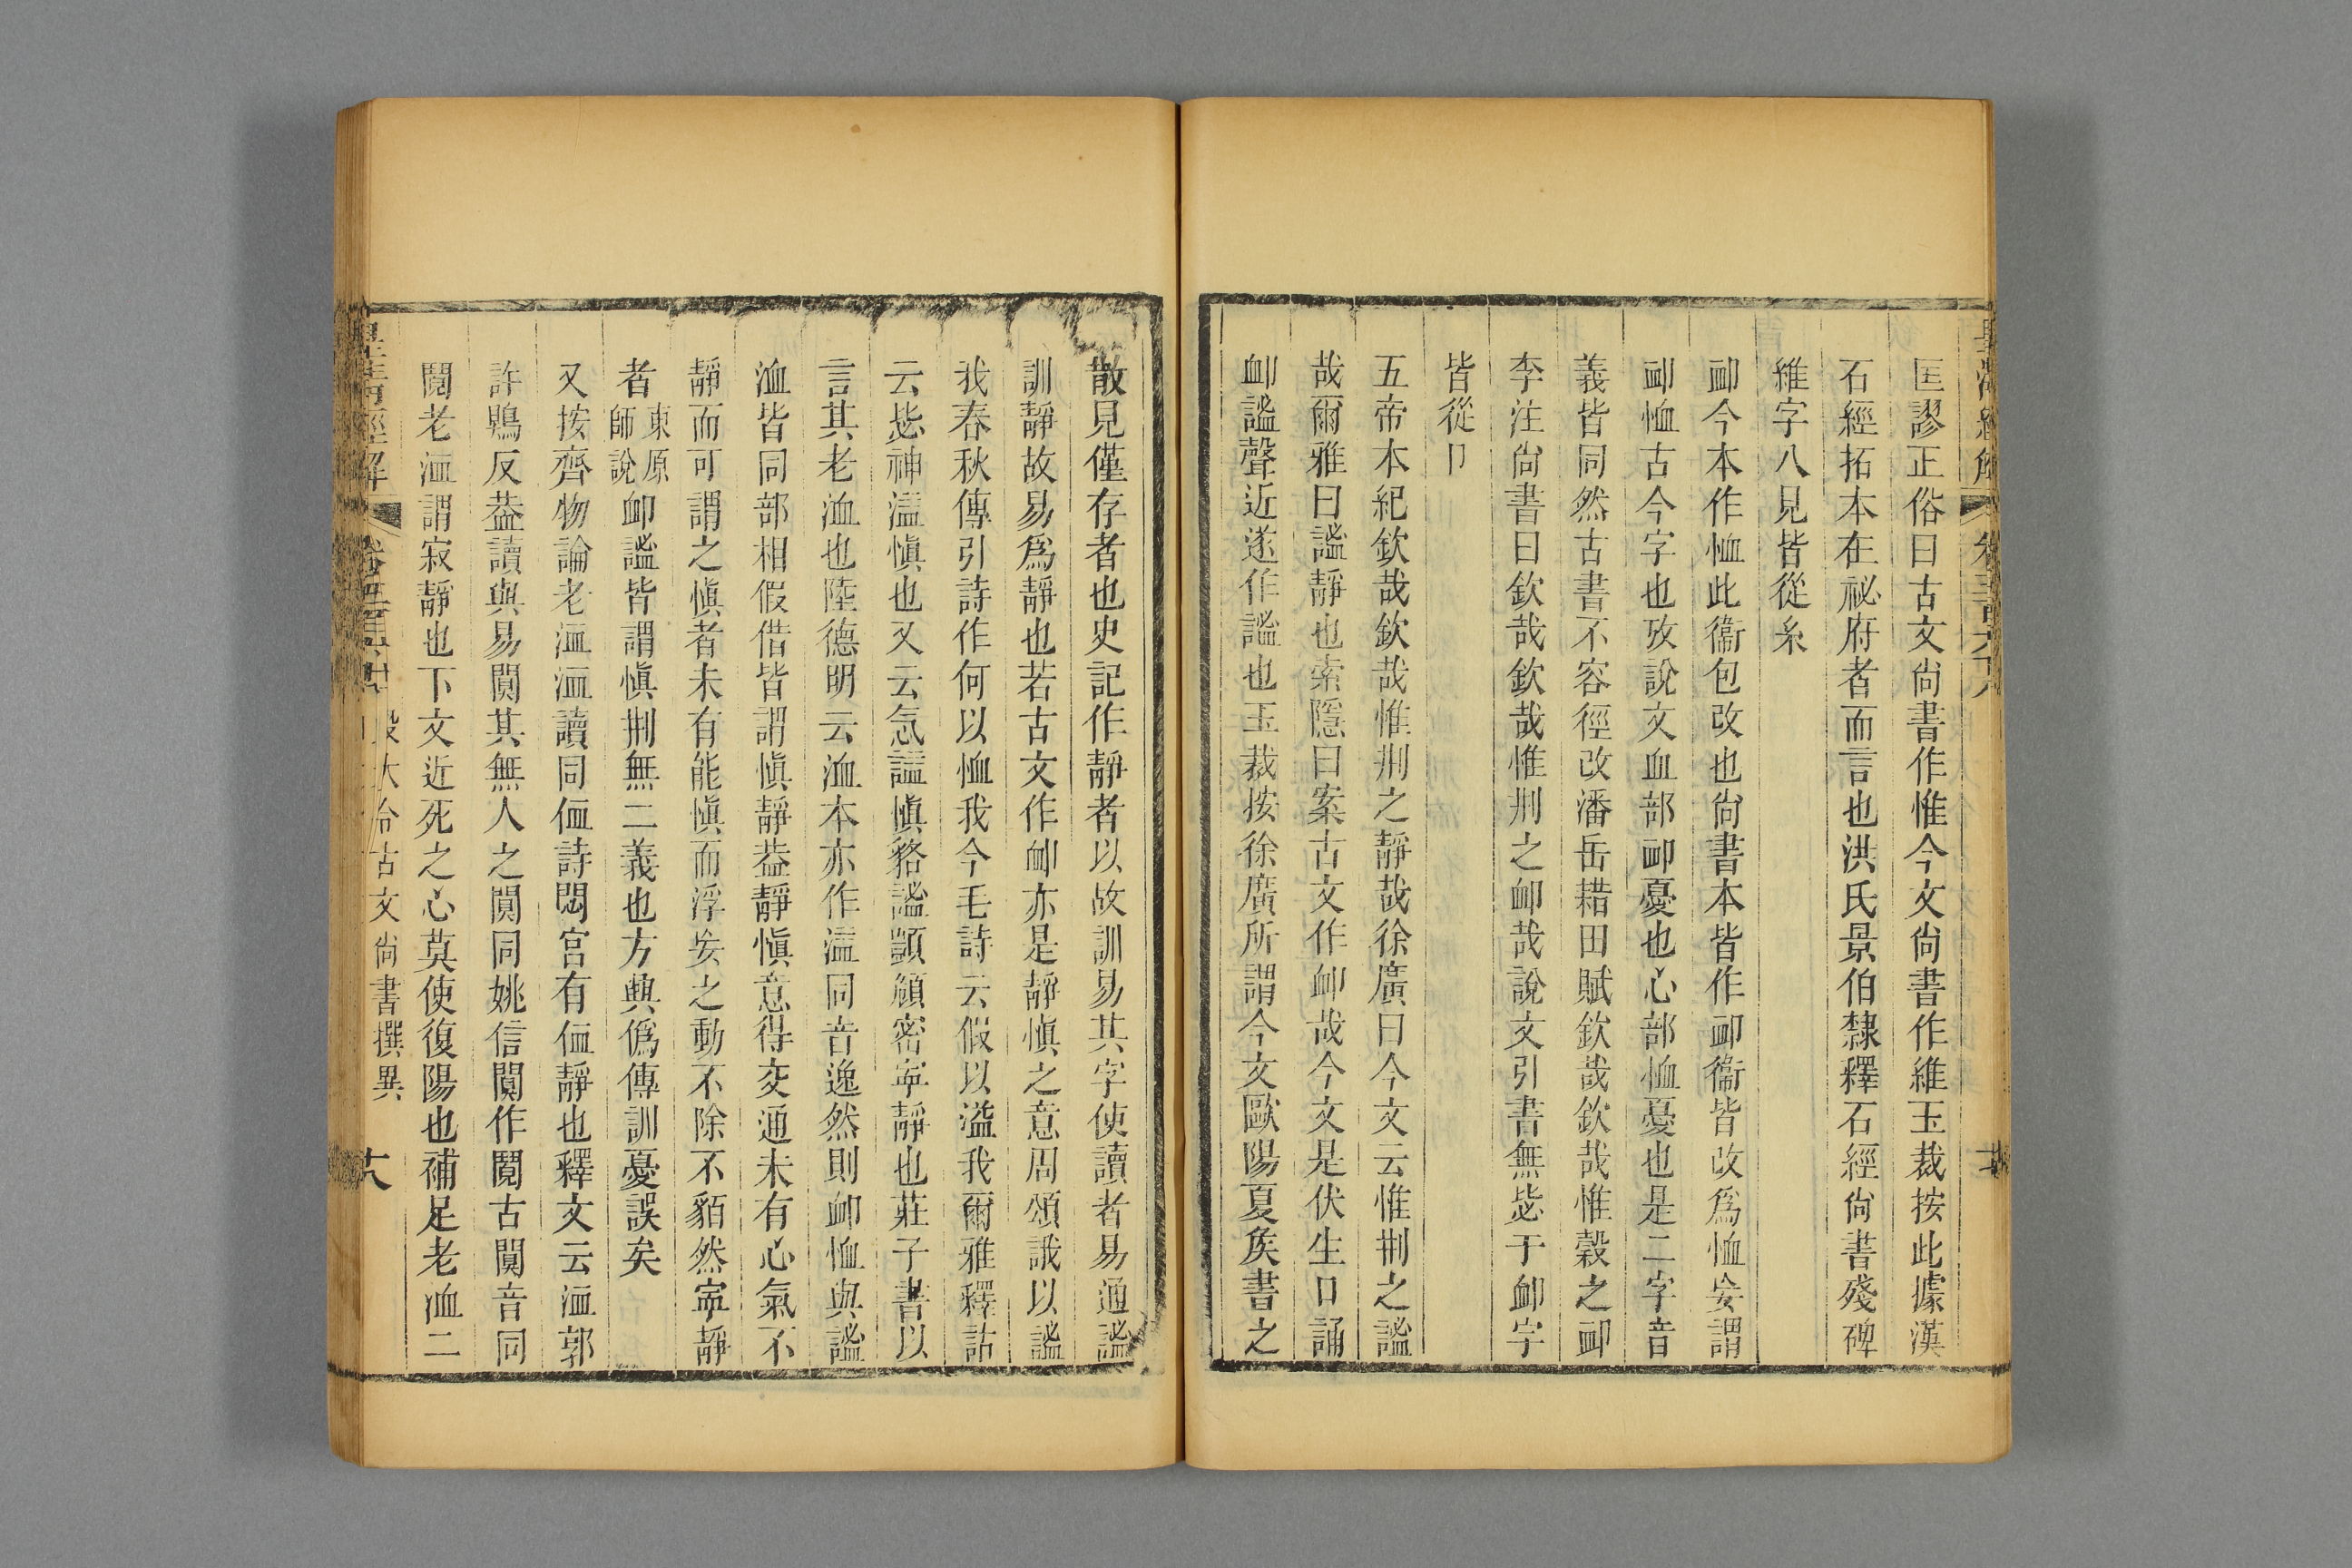 匡謬正俗曰古文尙書作惟今文尙書作維玉裁按此據漢
石經拓本在祕府者而言也洪氏景伯隸釋石經尙書殘碑
維字八見皆從糸
卹今本作恤此衞包改也尙書本皆作卹衞皆改爲恤妄謂
卹恤古今字也攷說文血部卹憂也心部恤憂也是二字音
義皆同然古書不容徑改潘岳耤田賦欽哉欽哉惟穀之卹
李注尙書曰欽哉欽哉惟刑之卹哉說文引書無毖于卹字
皆從卩
五帝本紀欽哉欽哉惟刑之靜哉徐廣曰今文云惟刑之謐
哉爾雅曰謐靜也索隱曰案古文作卹哉今文是伏生口誦
卹謐聲近遂作謐也玉裁按徐廣所謂今文歐陽夏矦書之
散見僅存者也史記作靜者以故訓易其字使讀者易通謐
訓靜故易爲靜也若古文作卹亦是靜愼之意周頌誐以謐
我春秋傳引詩作何以恤我今毛詩云假以溢我爾雅釋詁
云毖神溢愼也又云忥謐愼貉謐顗頠密寍靜也莊子書以
言其老洫也陸德明云洫本亦作溢同音逸然則卹恤與謐
洫皆同部相假借皆謂愼靜葢靜愼意得交通未有心氣不
靜而可謂之愼者未有能愼而浮妄之動不除不貊然寍靜
者東原師說卹謐皆謂愼刑無二義也方興僞傳訓憂誤矣
又按齊物論老洫洫讀同侐詩閟宮有侐靜也釋文云洫郭
許鵙反葢讀與易闃其無人之闃同姚信闃作閴古闃音同
閴老洫謂寂靜也下文近死之心莫使復陽也補足老洫二
段大令古文尙書撰異